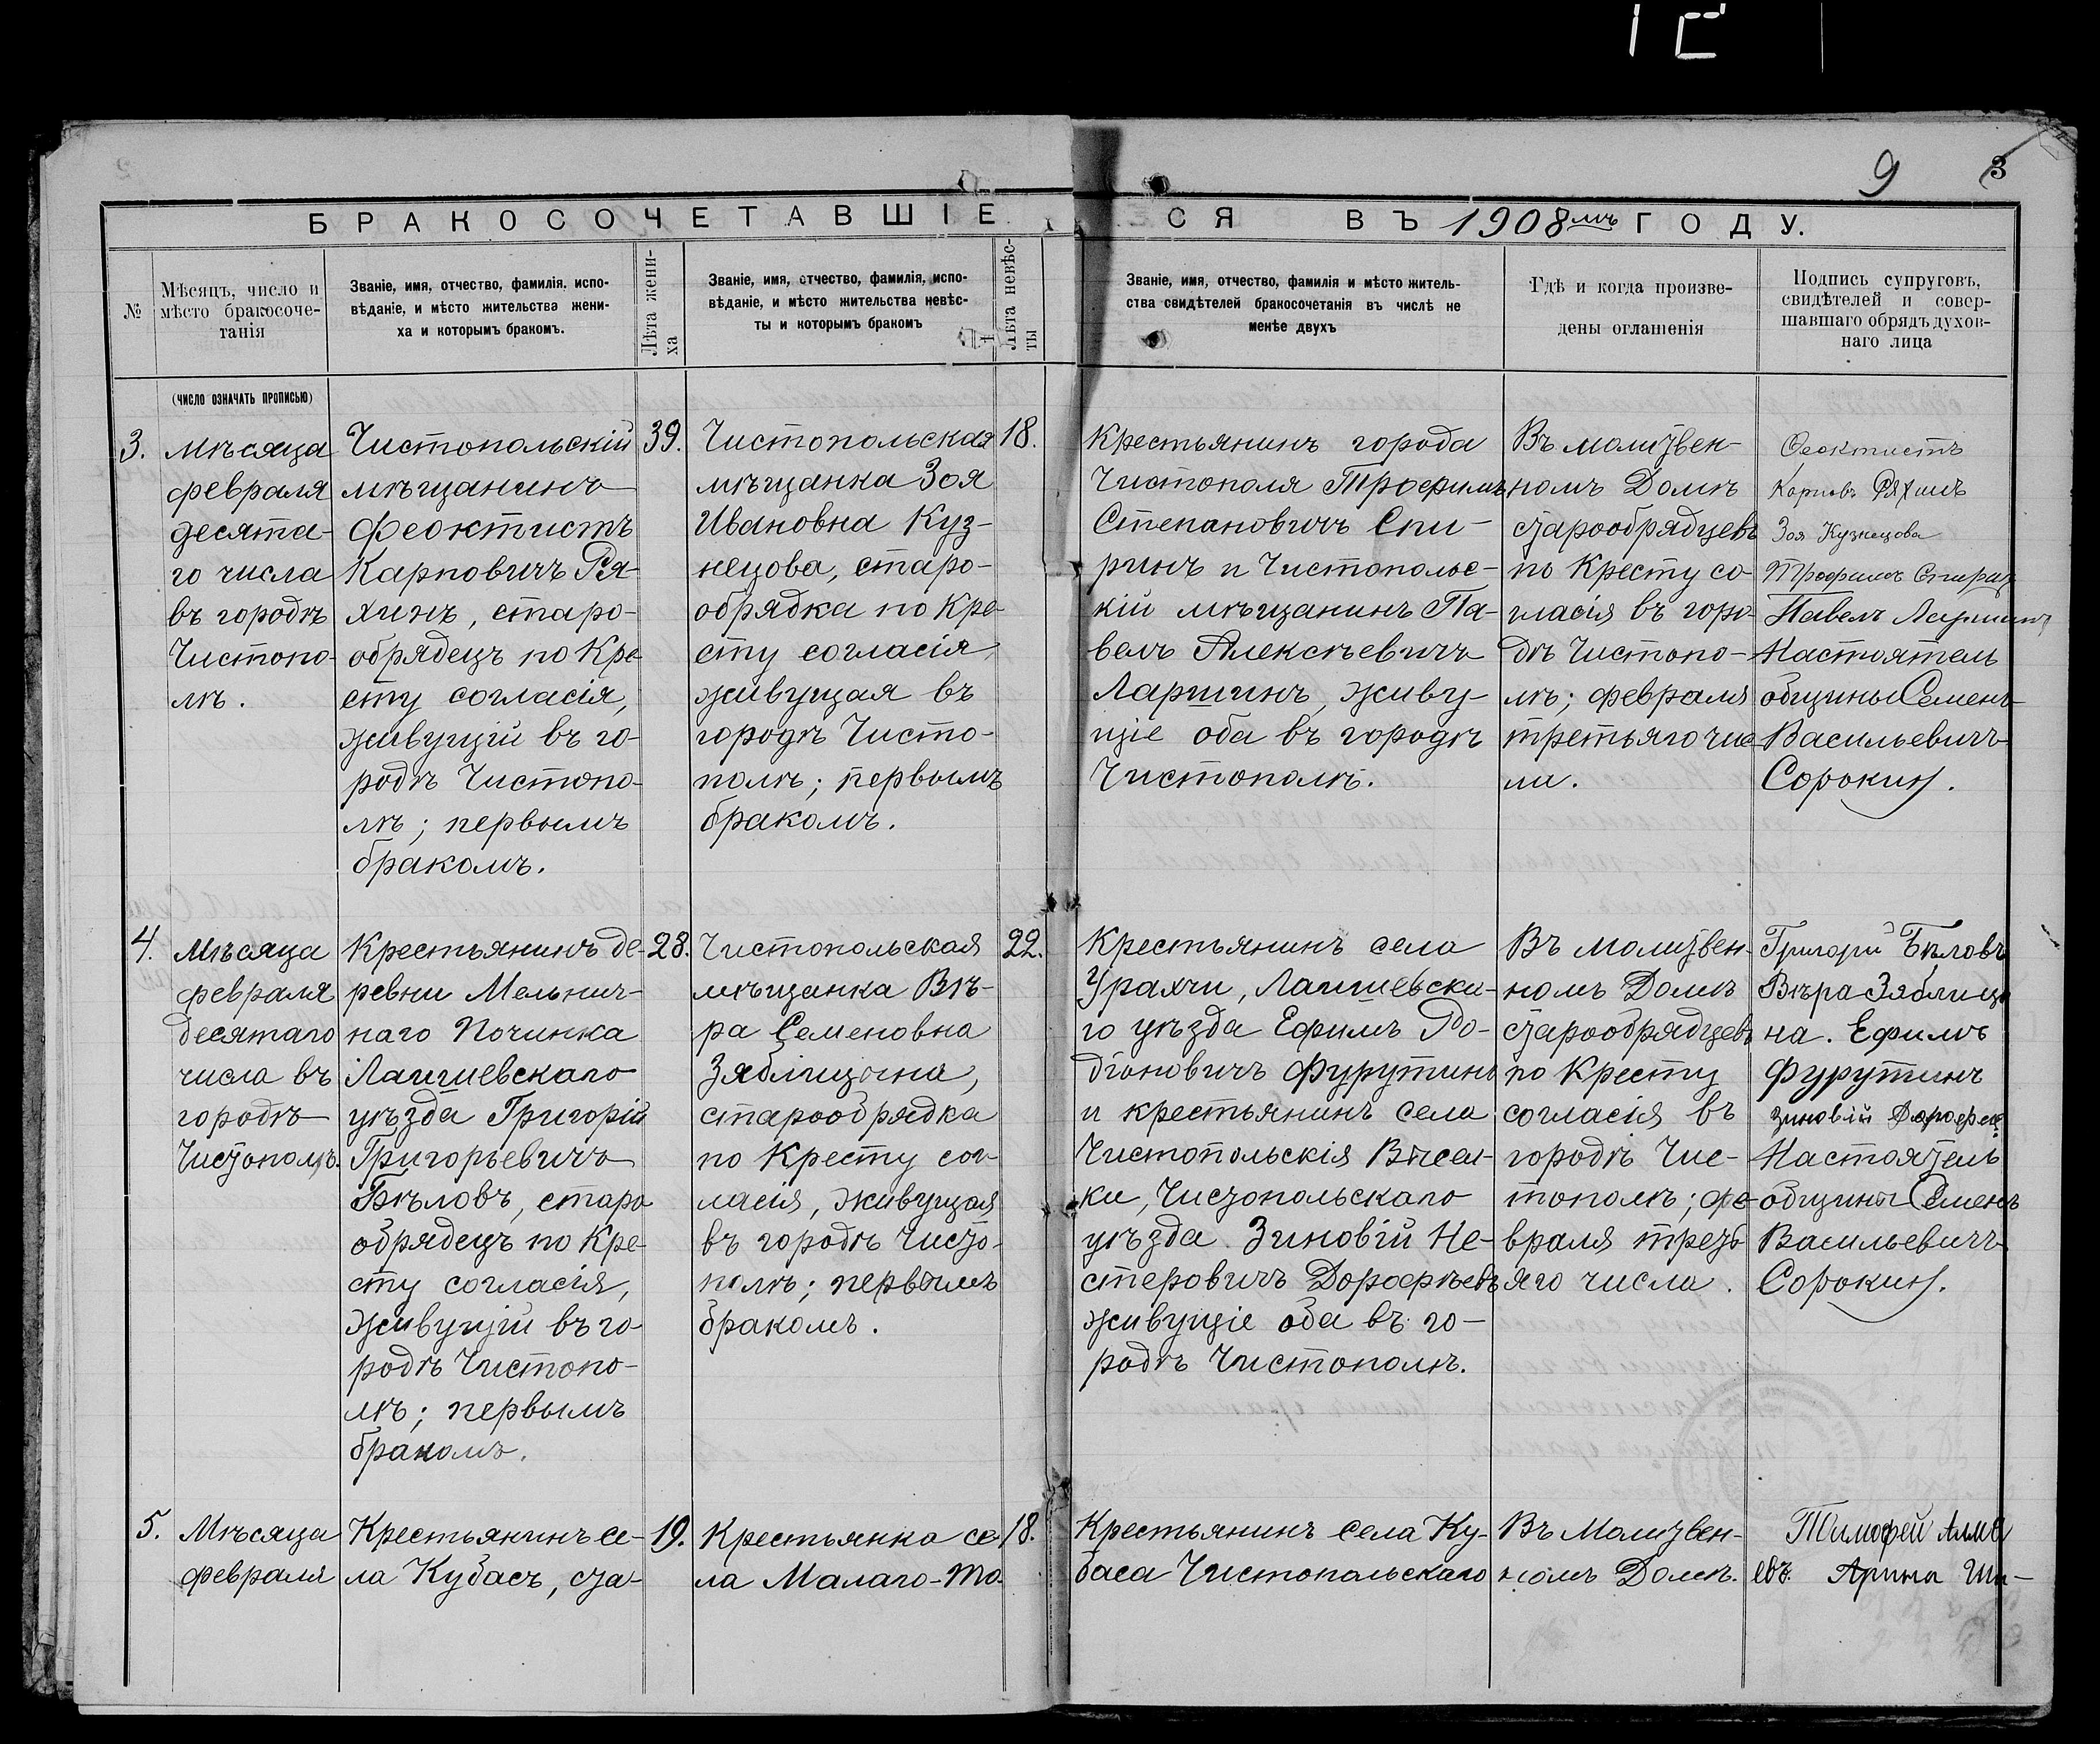 9 3
БРАКОСОЧЕТАВШІЕСЯ ВЪ 1908мъ ГОДУ.
№
Мѣсяцъ, число и
мѣсто бракосоче-
танія
Званіе, имя, отчество, фамилія. испо-
вѣданіе, и мѣсто жительства жени-
ха и которымъ бракомъ.
Лѣта жени-
ха
Званіе, имя, отчество, фамилія, испо-
вѣданіе, и мѣсто жительства невѣс-
ты и которымъ бракомъ
Лѣта невѣс-
ты
Званіе, имя, отчество, фамилія и мѣсто житель-
ства свидѣтелей бракосочетанія въ числѣ не
менѣе двухъ
Гдѣ и когда произве-
дены оглашенія
Подпись супруговъ,
свидѣтелей и совер-
шавшаго обрядъ духов-
наго лица
(ЧИСЛО ОЗНАЧАТЬ ПРОПИСЬЮ)
3.
Мѣсяца
февраля
десята-
го числа
въ городѣ
Чистопо-
лѣ.
Чистопольскій
мѣщанинъ
Феоктистъ
Карповичъ Ря-
хинъ, старо-
обрядецъ по Кре-
сту согласія,
живущій въ го-
родѣ Чистопо-
лѣ; первымъ
бракомъ.
39.
Чистопольская
мѣщанка Зоя
Ивановна Куз-
нецова, старо-
обрядка по Кре-
сту согласія,
живущая въ
городѣ Чисто-
полѣ; первымъ
бракомъ.
18.
Крестьянинъ города
Чистополя Трофимъ
Степановичъ Спи-
ринъ и Чистопольс-
кій мѣщанинъ Па-
велъ Алексѣевичъ
Ларшинъ, живу-
щіе оба въ городѣ
Чистополѣ.
Въ молитвен-
номъ Домѣ
старообрядцевъ
по Кресту со-
гласія въ горо-
дѣ Чистопо-
лѣ; февраля
третьяго чис-
ла.
Феоктистъ
Карповъ Ряхинъ
Зоя Кузнецова
Трофимъ Спирин
Павелъ Ларшинъ
Настоятель
общины Семенъ
Васильевичъ
Сорокинъ.
4.
Мѣсяца
февраля
десятаго
числа въ
городѣ
Чистополѣ.
Крестьянинъ де-
ревни Мельнич-
наго Починка
Лаишевскаго
уѣзда Григорій
Григорьевичъ
Бѣловъ, старо
обрядецъ по Кре-
сту согласія,
живущій въ го-
родѣ Чистопо-
лѣ; первымъ
бракомъ.
28.
Чистопольская
мѣщанка Вѣ-
ра Семеновна
Зяблицина,
старообрядка
по Кресту сог-
ласія, живущая
въ городѣ Чисто-
полѣ; первымъ
бракомъ.
22.
Крестьянинъ села
Урахчи, Лаишевска-
го уѣзда Ефимъ Ро-
діоновичъ Фурутинъ
и крестьянинъ села
Чистопольскія Высел-
ки, Чистопольскаго
уѣзда Зиновій Не-
стеровичъ Дорофѣевъ
живущіе оба въ го-
родѣ Чистополѣ.
Въ молитвен-
номъ Домѣ
старообрядцевъ
по Кресту
согласія въ
городѣ Чис-
тополѣ; фе-
враля треть-
яго числа.
Григорій Бѣловъ
Вѣра Зяблици
на. Ефимъ
Фурутинъ
Зиновій Дорофѣе
Настоятель
общины Семенъ
Васильевичъ
Сорокинъ.
5.
Мѣсяца
февраля
Крестьянинъ се-
ла Кубасъ, ста-
19.
Крестьянка се
ла Малаго-То-
18.
Крестьянинъ села Ку-
баса Чистопольскаго
Въ Молитвен-
номъ Домѣ.
Тимофей
евъ. Арина